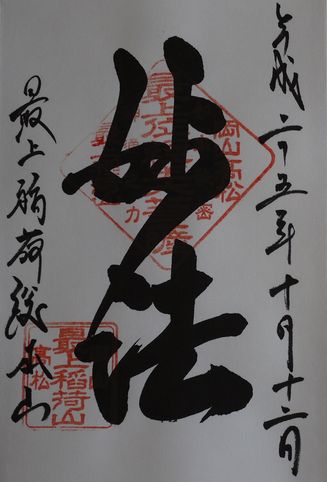 平成二十五年十月十二日
妙法
最上稲荷総本山
岡山高松
最上稲荷山
高松